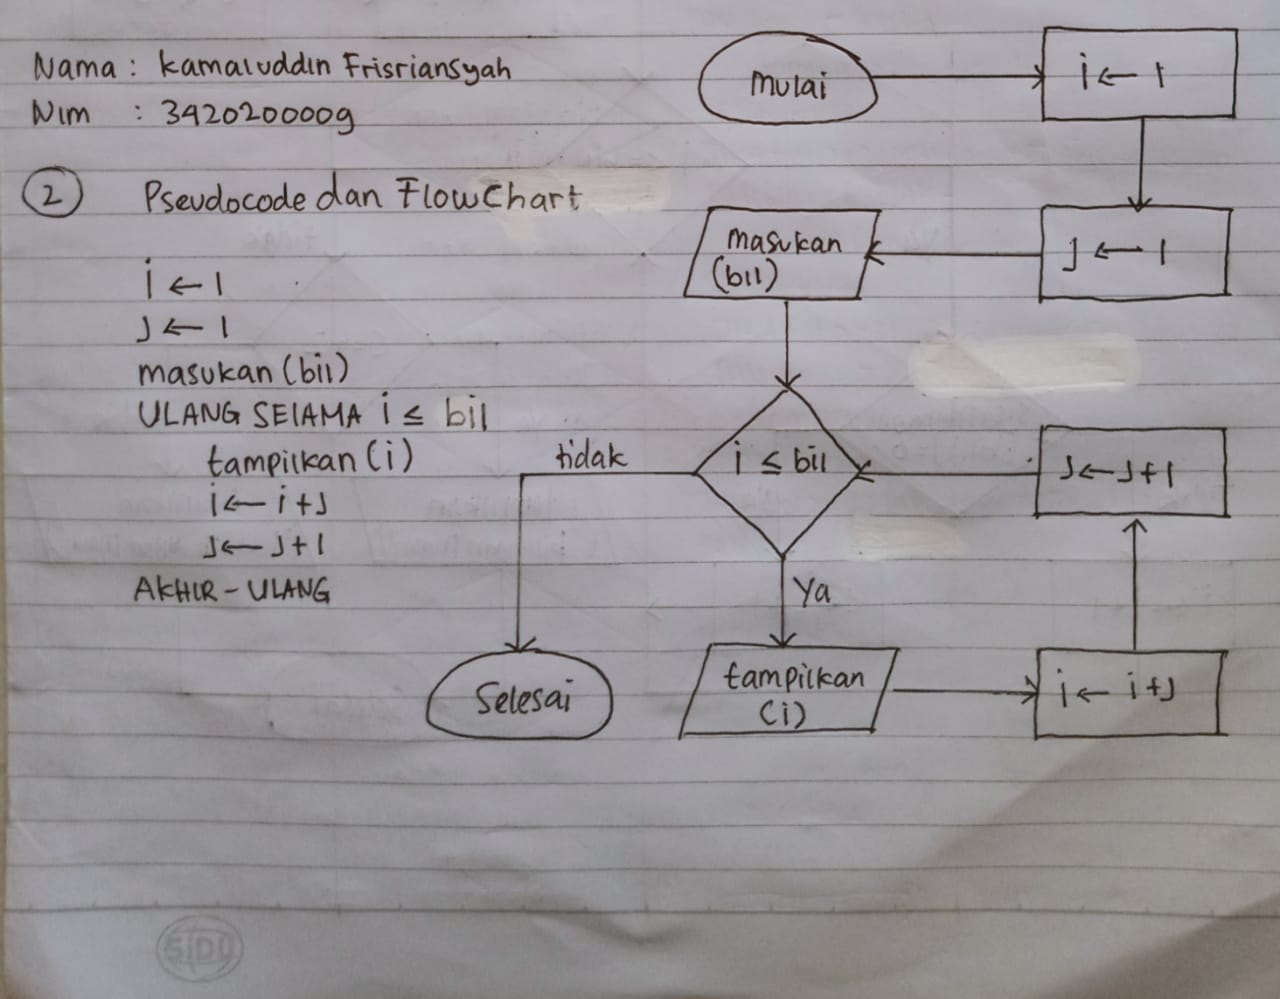 Nama : Kamaluddin Frisriansyah
Nim : 3420200009
2 Pseudocode dan FlowChart
i ← 1
J ← 1
masukan (bil)
ULANG SELAMA i ≤ bil
tampilkan (i)
i ← i + J
J ← J + 1
AKHIR - ULANG
Mulai
i ← 1
J ← 1
masukan
(bil)
i ≤ bil
tidak
Ya
Selesai
tampilkan
(i)
i ← i + J
J ← J + 1
SIDU